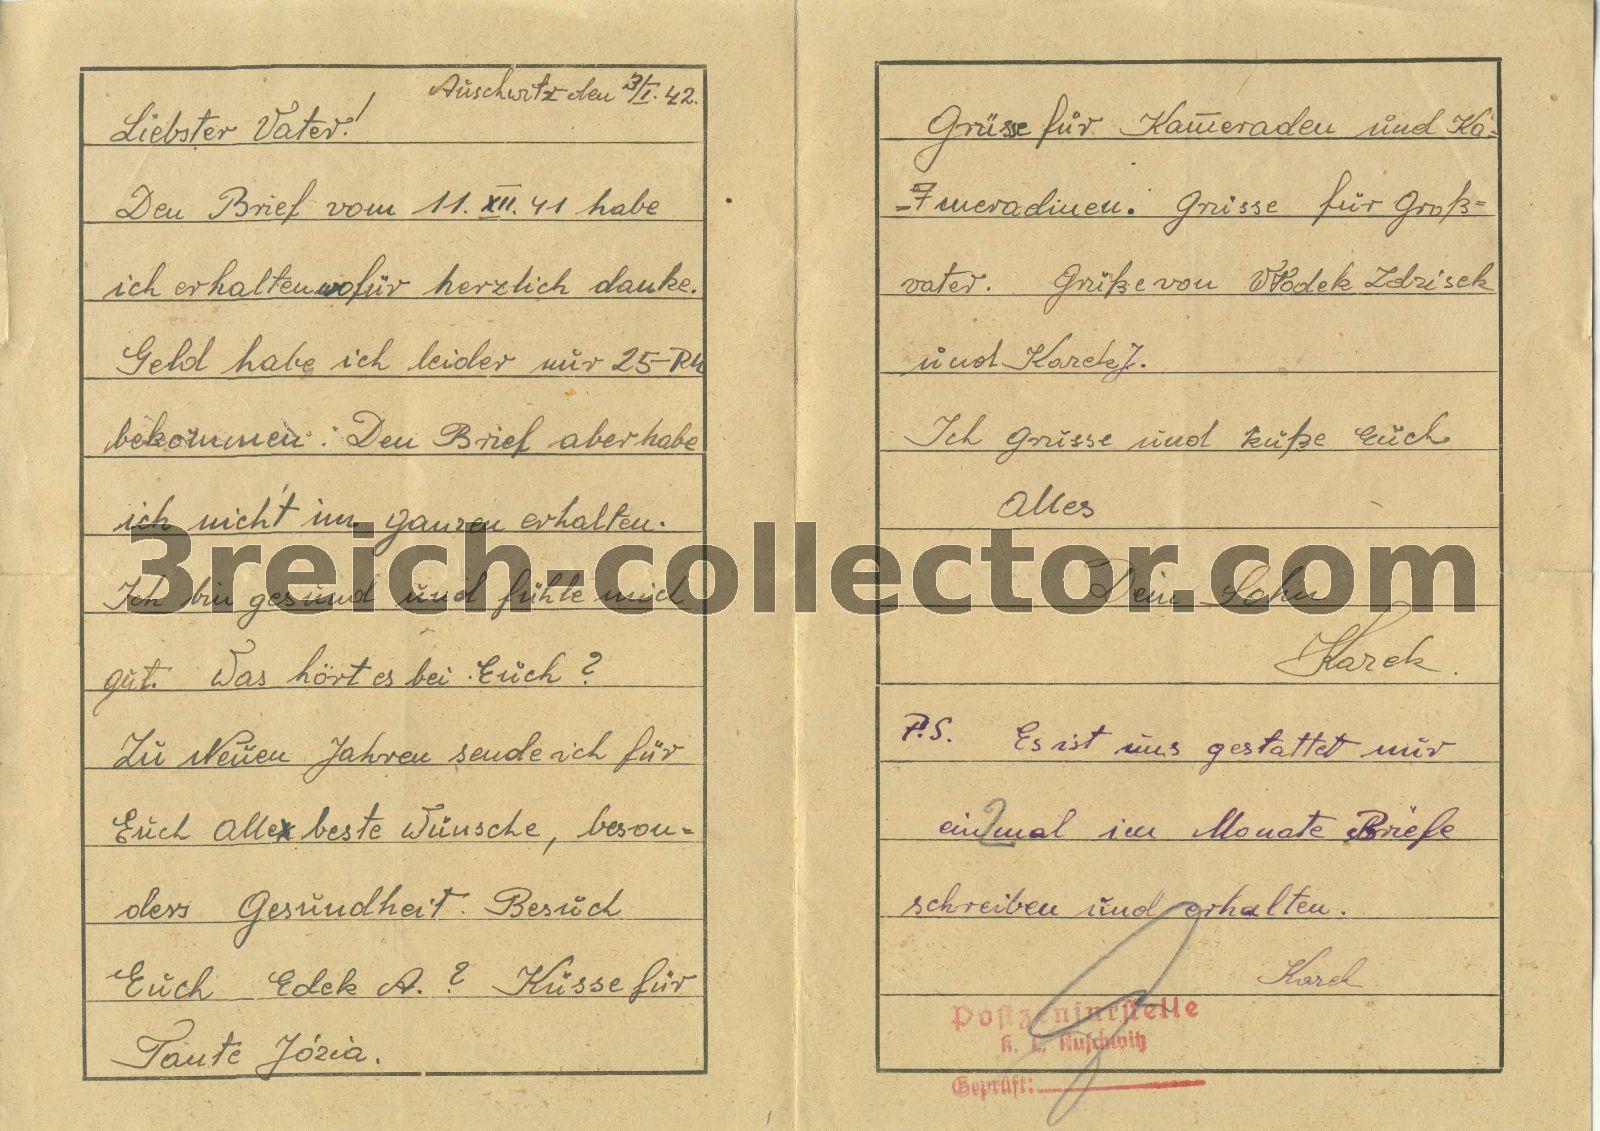 Auschwitz den 3/I. 42.
Liebster Vater!
Den Brief vom 11. XII. 41 habe
ich erhalten wofür herzlich danke.
Geld habe ich leider nur 25-RM
bekommen. Den Brief aber habe
ich nicht im ganzen erhalten.
Ich bin gesund und fühle mich
gut. Was hört es bei Euch?
Zu Neuen Jahren sende ich für
Euch alle beste Wünsche, beson-
ders Gesundheit. Besuch
Euch Edek A.? Küsse für
Tante Józia.
Grüsse für Kameraden und Ka-
meradinen. Grüsse für Groß-
vater. Grüße von Włodek Zdzisek
und Karek J.
Ich grüsse und küße Euch
alles
Dein Sohn
Karek.
P.S. Es ist uns gestattet nur
ein 2 mal im Monate Briefe
schreiben und erhalten.
Karek
Postzensurstelle
K. L. Auschwitz
Geprüft:
3reich-collector.com